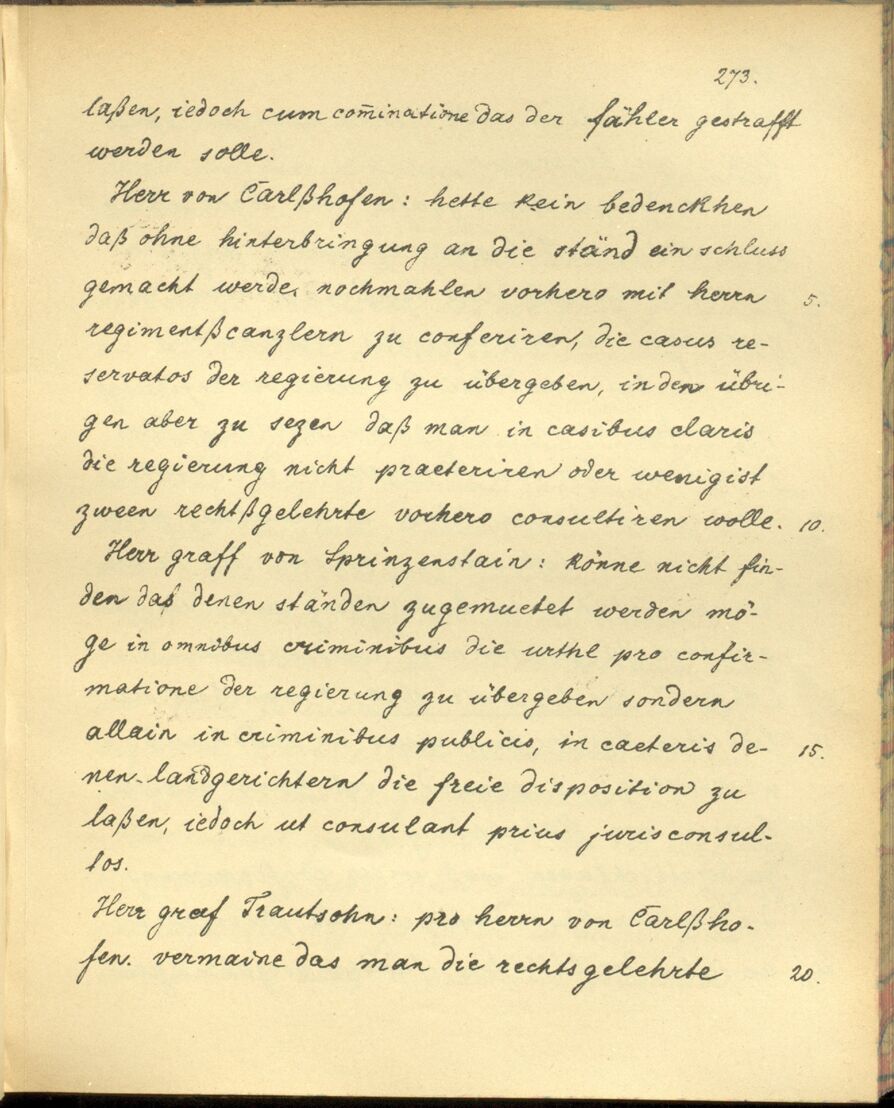 273.
laßen, iedoch cum com̄inatione das der fähler gestrafft
werden solle.
Herr von Carlßhofen: hette kein bedenckhen
daß ohne hinterbringung an die ständ ein schluss
gemacht werde, nochmahlen vorhero mit herrn 5.
regimentßcanzlern zu conferiren, die casus re-
servatos der regierung zu übergeben, in den übri-
gen aber zu sezen daß man in casibus claris
die regierung nicht praeteriren oder wenigist
zween rechtßgelehrte vorhero consultiren wolle. 10.
Herr graff von Sprinzenstain: könne nicht fin-
den das denen ständen zugemuetet werden mö-
ge in omnibus criminibus die urthl pro confir-
matione der regierung zu übergeben sondern
allain in criminibus publicis, in caeteris de- 15.
nen landgerichtern die freie disposition zu
laßen, iedoch ut consulant prius jurisconsul-
tos.
Herr graf Trautsohn: pro herrn von Carlßho-
fen. vermaine das man die rechtsgelehrte 20.